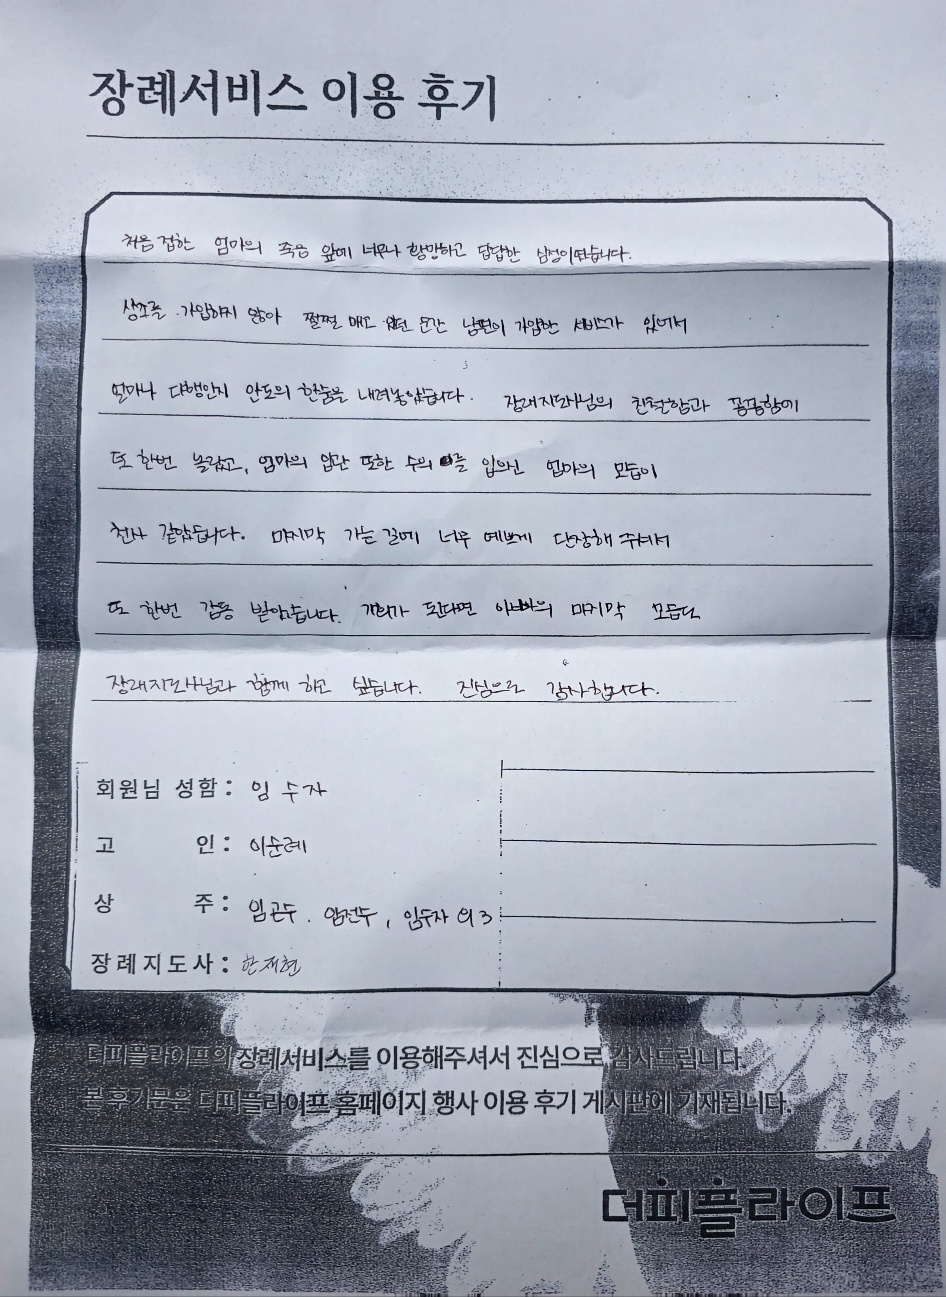 장례서비스 이용 후기
처음 접한 엄마의 죽음 앞에 너무나 황망하고 답답한 심정이였습니다.
상조를 가입하지 않아 쩔쩔 매고 있던 순간 남편이 가입한 서비스가 있어서
얼마나 다행인지 안도의 한숨을 내려놓았습니다. 장래지도사님의 친절함과 꼼꼼함에
또 한번 놀랐고, 엄마의 입관 또한 수의를 입으신 엄마의 모습이
천사 같았습니다. 마지막 가는 길에 너무 예쁘게 단장해 주셔서
또 한번 감동 받았습니다. 기회가 된다면 아빠의 마지막 모습도
장래지도사님과 함께 하고 싶습니다. 진심으로 감사합니다.
회원님 성함 : 임수자
고 인 : 이순례
상 주 : 임근두. 임전두, 임수자 외 3
장례지도사 : 한재현
더피플라이프의 장례서비스를 이용해주셔서 진심으로 감사드립니다.
본 후기문은 더피플라이프 홈페이지 행사 이용 후기 게시판에 기재됩니다.
더피플라이프